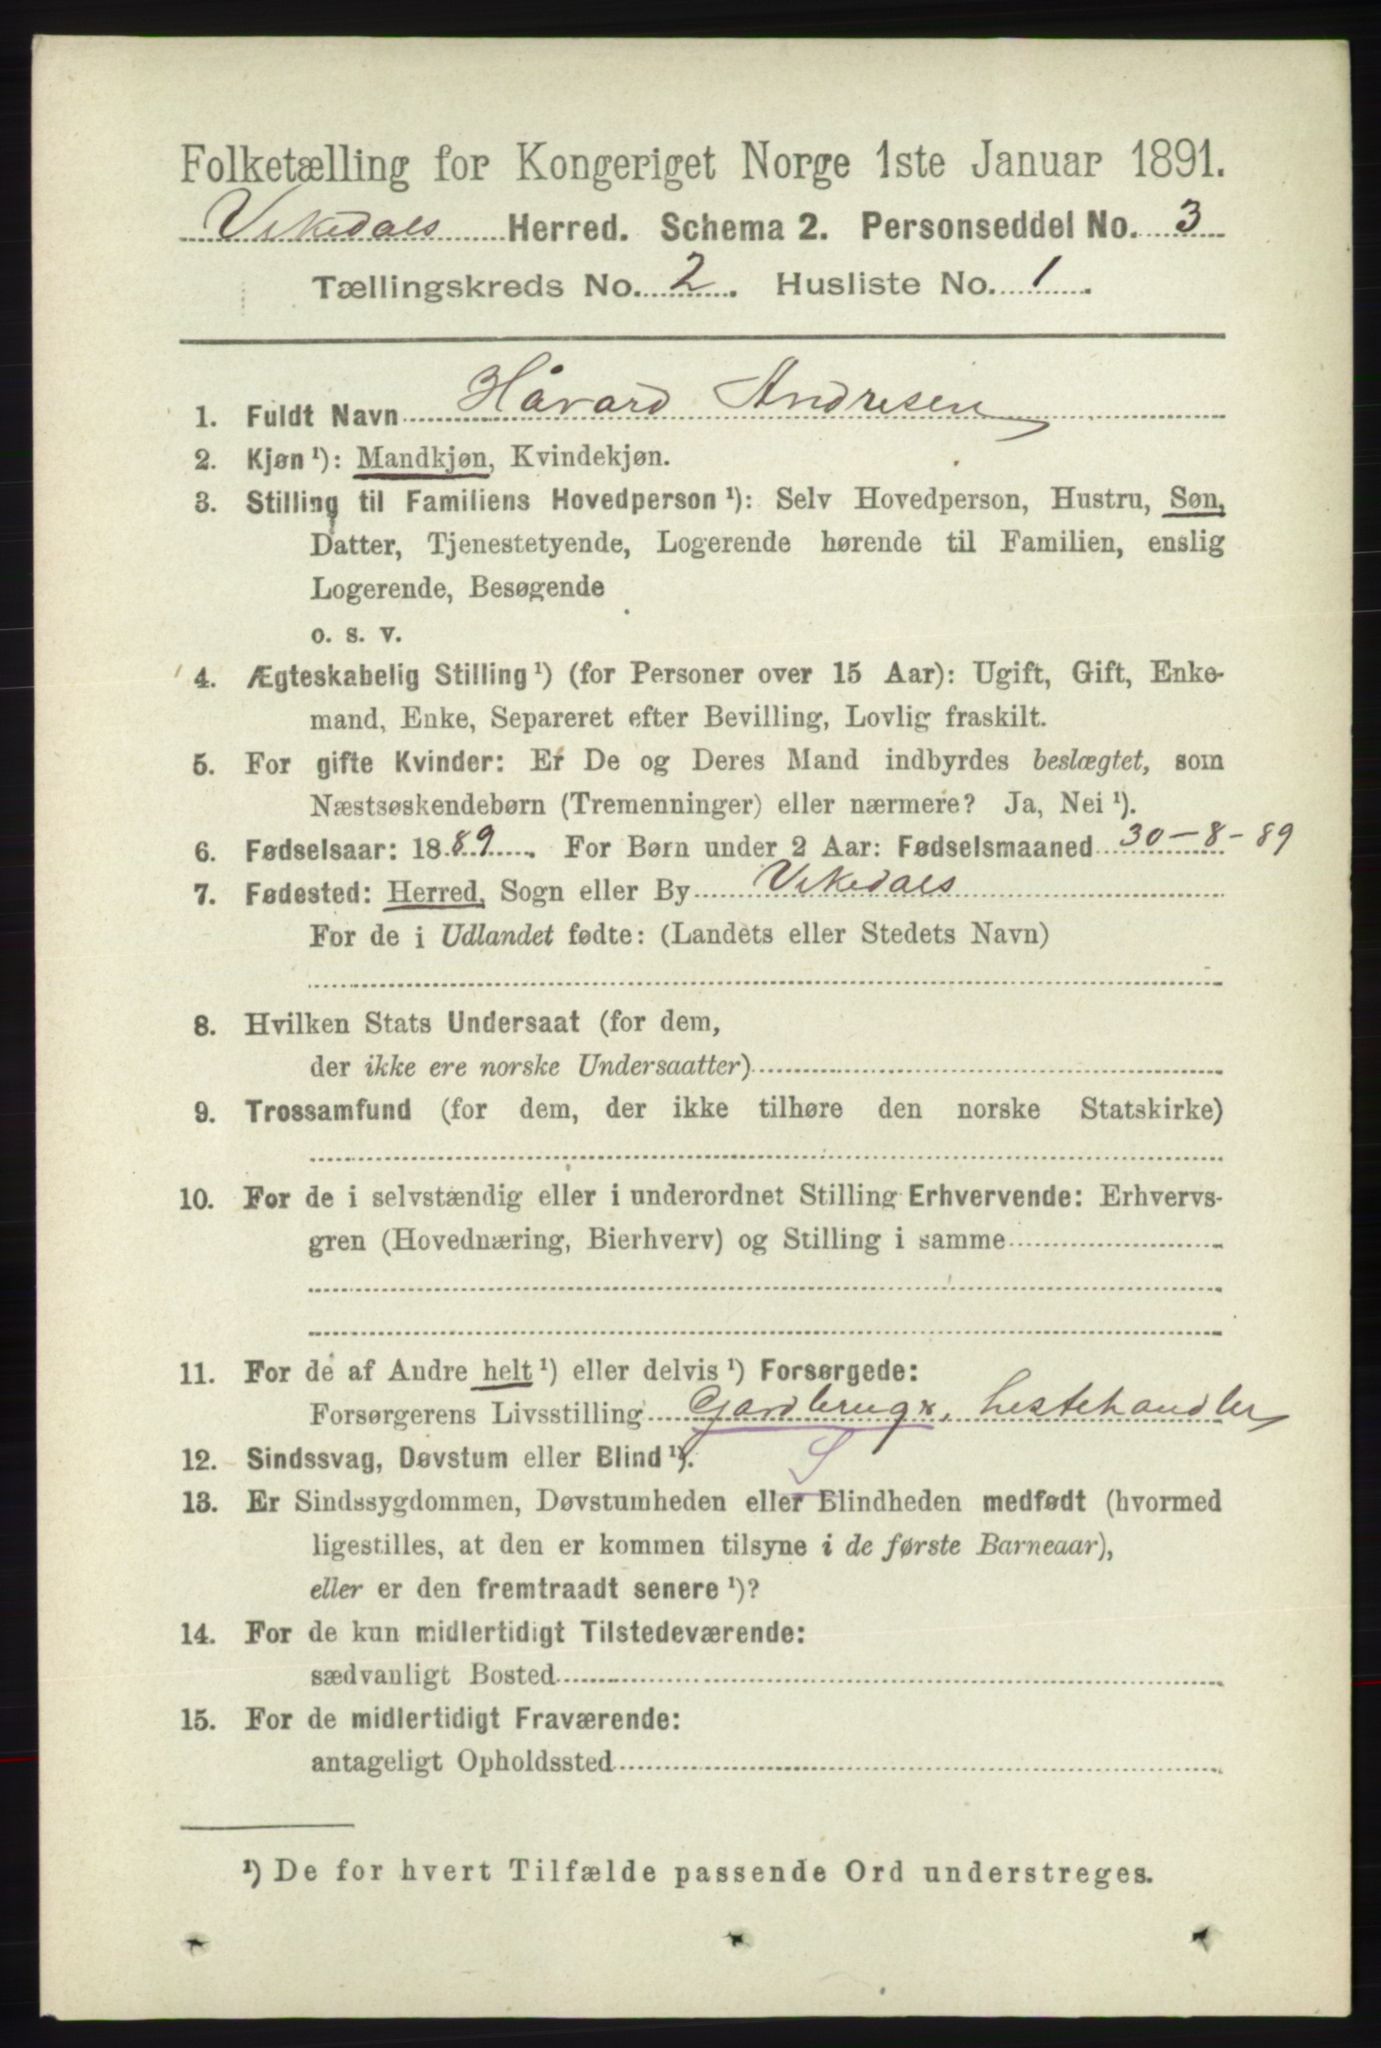 Folketælling for Kongeriget Norge 1ste Januar 1891.
Vikedals Herred. Schema 2. Personseddel No. 3
Tællingskreds No. 2. Husliste No. 1.
1. Fuldt Navn Håvard Andresen
2. Kjøn ¹): Mandkjøn, Kvindekjøn.
3. Stilling til Familiens Hovedperson ¹): Selv Hovedperson, Hustru, Søn,
Datter, Tjenestetyende, Logerende hørende til Familien, enslig
Logerende, Besøgende
o. s. v.
4. Ægteskabelig Stilling ¹) (for Personer over 15 Aar): Ugift, Gift, Enke-
mand, Enke, Separeret efter Bevilling, Lovlig fraskilt.
5. For gifte Kvinder: Er De og Deres Mand indbyrdes beslægtet, som
Næstsøskendebørn (Tremenninger) eller nærmere? Ja, Nei ¹).
6. Fødselsaar: 1889. For Børn under 2 Aar: Fødselsmaaned 30-8-89
7. Fødested: Herred, Sogn eller By Vikedals
For de i Udlandet fødte: (Landets eller Stedets Navn)
8. Hvilken Stats Undersaat (for dem,
der ikke ere norske Undersaatter)
9. Trossamfund (for dem, der ikke tilhøre den norske Statskirke)
10. For de i selvstændig eller i underordnet Stilling Erhvervende: Erhvervs-
gren (Hovednæring, Bierhverv) og Stilling i samme
11. For de af Andre helt ¹) eller delvis ¹) Forsørgede:
Forsørgerens Livsstilling Gardbrug x, hestehandler
12. Sindssvag, Døvstum eller Blind ¹). S
13. Er Sindssygdommen, Døvstumheden eller Blindheden medfødt (hvormed
ligestilles, at den er kommen tilsyne i de første Barneaar),
eller er den fremtraadt senere ¹)?
14. For de kun midlertidigt Tilstedeværende:
sædvanligt Bosted
15. For de midlertidigt Fraværende:
antageligt Opholdssted
¹) De for hvert Tilfælde passende Ord understreges.